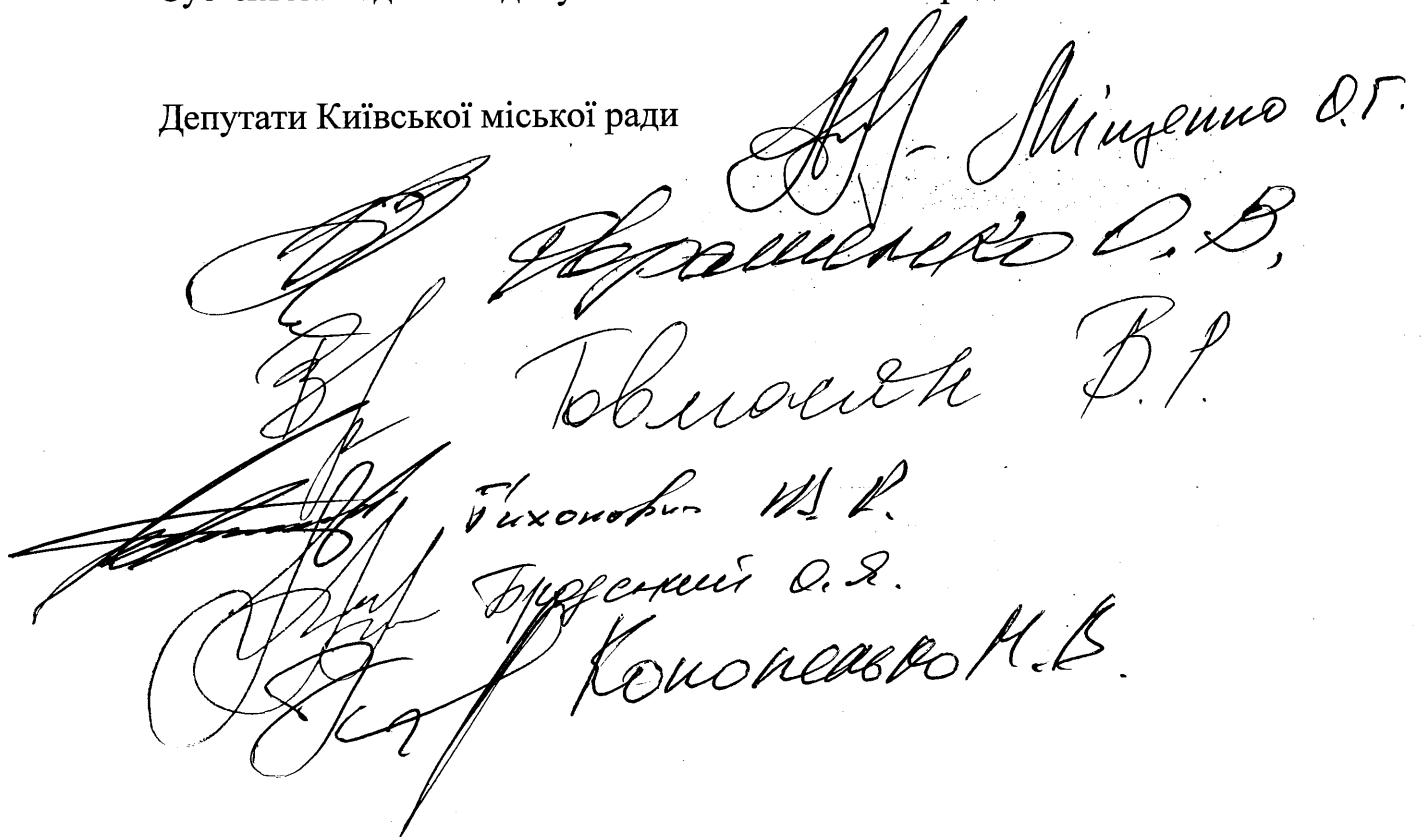 Депутати Київської міської ради
Міщенко О.Г.
О. В.
Товмасян В.Р.
Тихонович Ю. І.
Бродський О.Я.
Кононенко М.В.